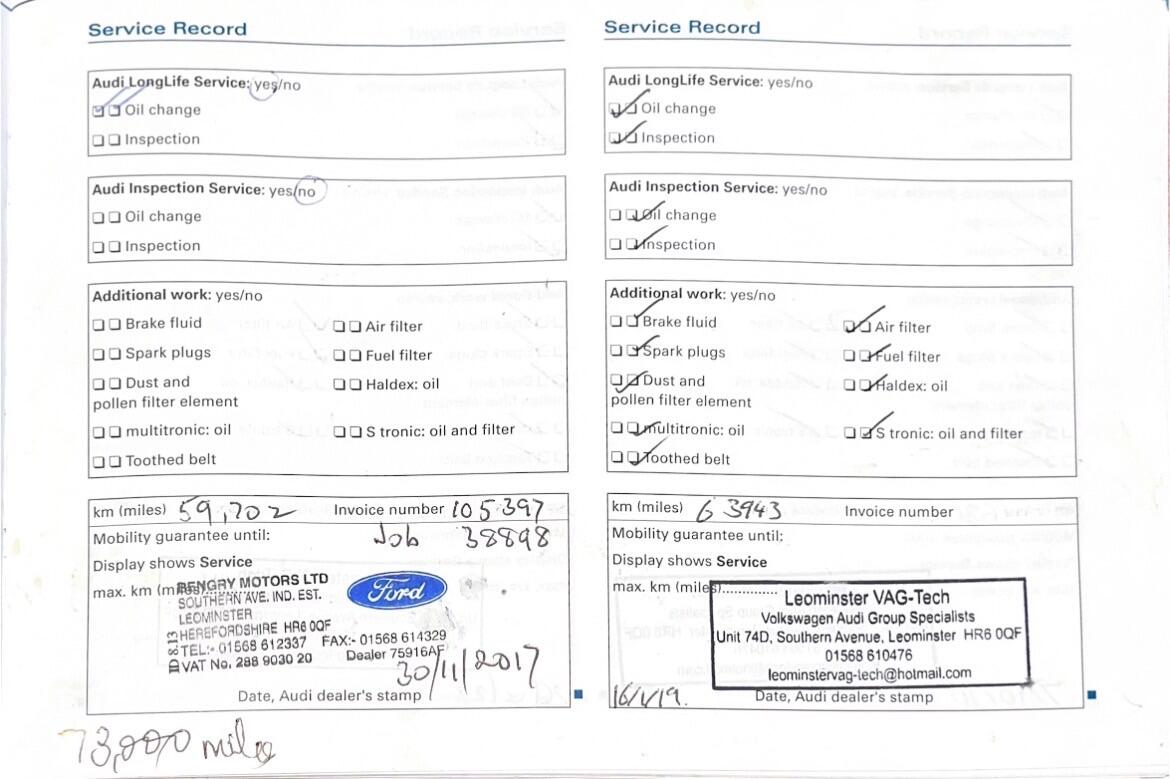 Service Record
Audi LongLife Service: yes/no
Oil change
Inspection
Audi Inspection Service: yes/no
Oil change
Inspection
Additional work: yes/no
Brake fluid
Air filter
Spark plugs
Fuel filter
Dust and
pollen filter element
Haldex: oil
multitronic: oil
S tronic: oil and filter
Toothed belt
km (miles) 59,702 Invoice number 105397
Mobility guarantee until: Job 38898
Display shows Service
max. km (miles)
BENGRY MOTORS LTD
SOUTHERN AVE. IND. EST.
LEOMINSTER
HEREFORDSHIRE HR6 0QF
TEL:- 01568 612337 FAX:- 01568 614329
VAT No. 288 9030 20 Dealer 75916AF
Ford
30/11/2017
Date, Audi dealer's stamp
73,000 miles
Service Record
Audi LongLife Service: yes/no
Oil change
Inspection
Audi Inspection Service: yes/no
Oil change
Inspection
Additional work: yes/no
Brake fluid
Air filter
Spark plugs
Fuel filter
Dust and
pollen filter element
Haldex: oil
multitronic: oil
S tronic: oil and filter
Toothed belt
km (miles) 63943 Invoice number
Mobility guarantee until:
Display shows Service
max. km (miles)..............
Leominster VAG-Tech
Volkswagen Audi Group Specialists
Unit 74D, Southern Avenue, Leominster HR6 0QF
01568 610476
leominstervag-tech@hotmail.com
16/1/19.
Date, Audi dealer's stamp